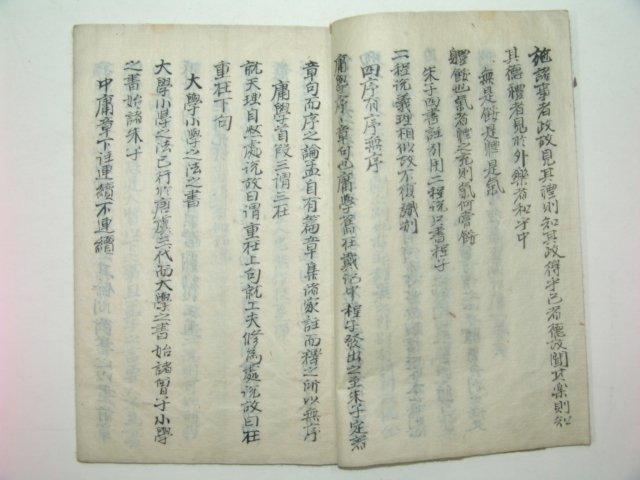 施諸事者政故見其禮則知其政得乎己者德故聞其樂則知
其德禮者見於外樂者和乎中
無是餒是體是氣
體餒也氣者體之充則氣何嘗餒
朱子四書註引用二程說只書程子
二程說義理相似故不復識別
四序有序無序
庸學序章句也庸學舊在戴記中程子發出之至朱子定著
章句而序之論孟自有篇章集諸家註而釋之所以無序
庸學首段三謂三在
就天理自然處說故曰謂重在上句就工夫修為處說故曰在
重在下句
大學小學之法之書
大學小學之法已行於唐虞三代而大學之書始諸曾子小學
之書始諸朱子
中庸章下註連續不連續